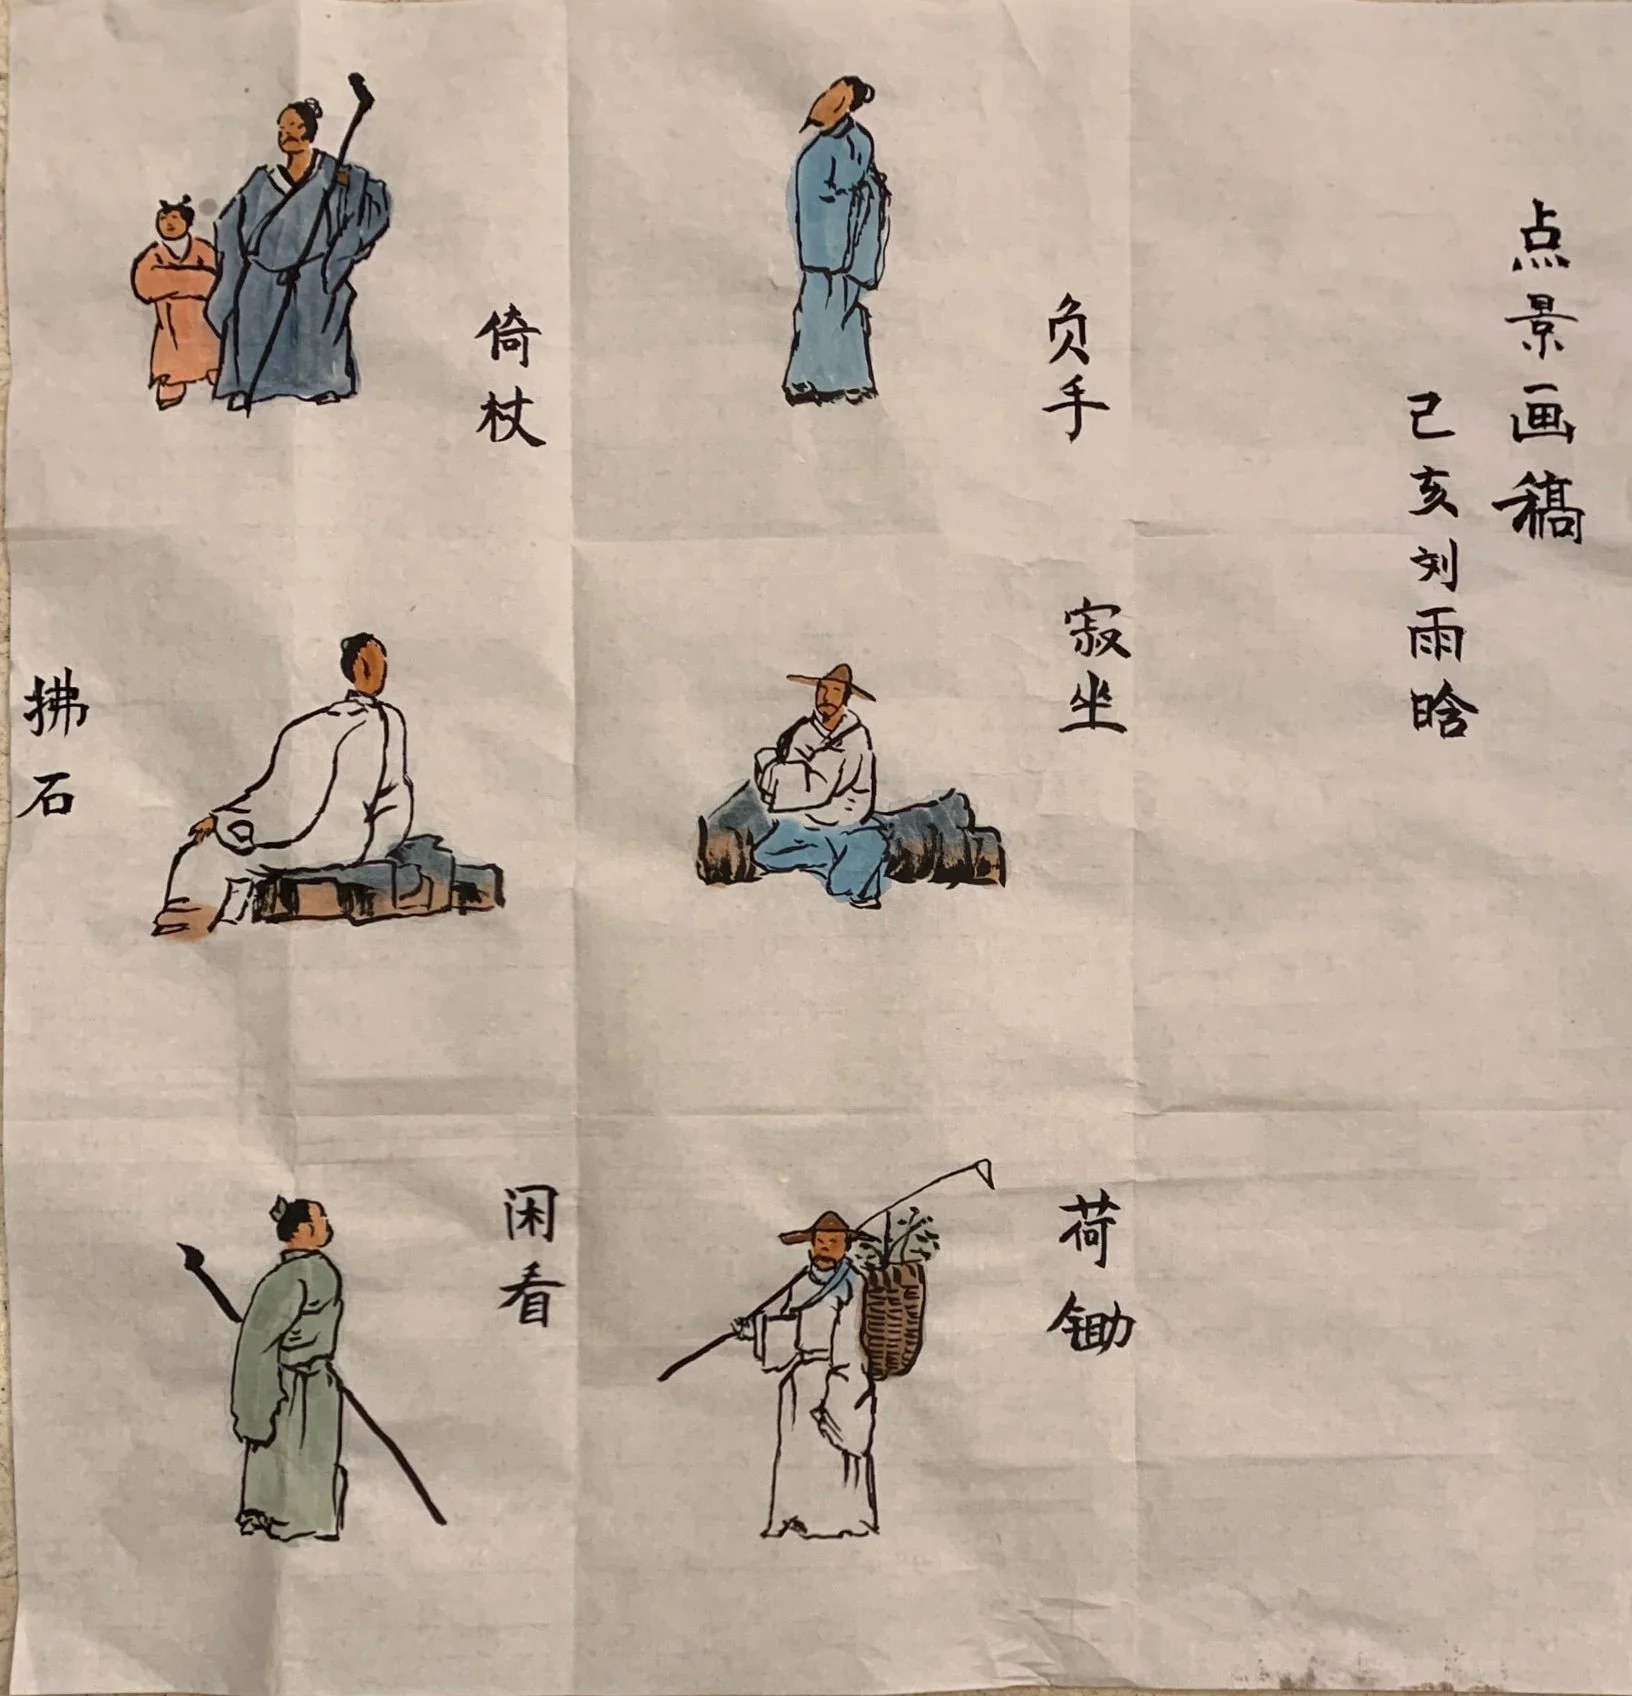 点景画稿
己亥刘雨晗
负手
倚杖
寂坐
拂石
荷锄
闲看